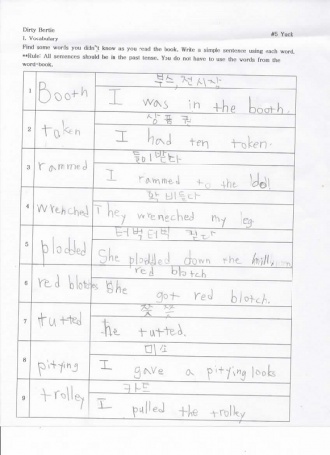 Dirty Bertie
#5 Yuck
1. Vocabulary
Find some words you didn't know as you read the book. Write a simple sentence using each word.
**Rule: All sentences should be in the past tense. You do not have to use the words from the
word-book.
부스, 전시장
1 Booth
I was in the booth.
상품권
2 token
I had ten token.
들이받다
3 rammed
I rammed to the
확 비틀다
4 wrenched
They wreneched my
터벅터벅 걷다
5 plodded
She plodded down the hill
red blotch
6 red blotches
She got red blotch.
쯧쯧
7 tutted
he tutted.
8 pitying
I gave a pitying looks
카트
9 trolley
I pulled the trolley